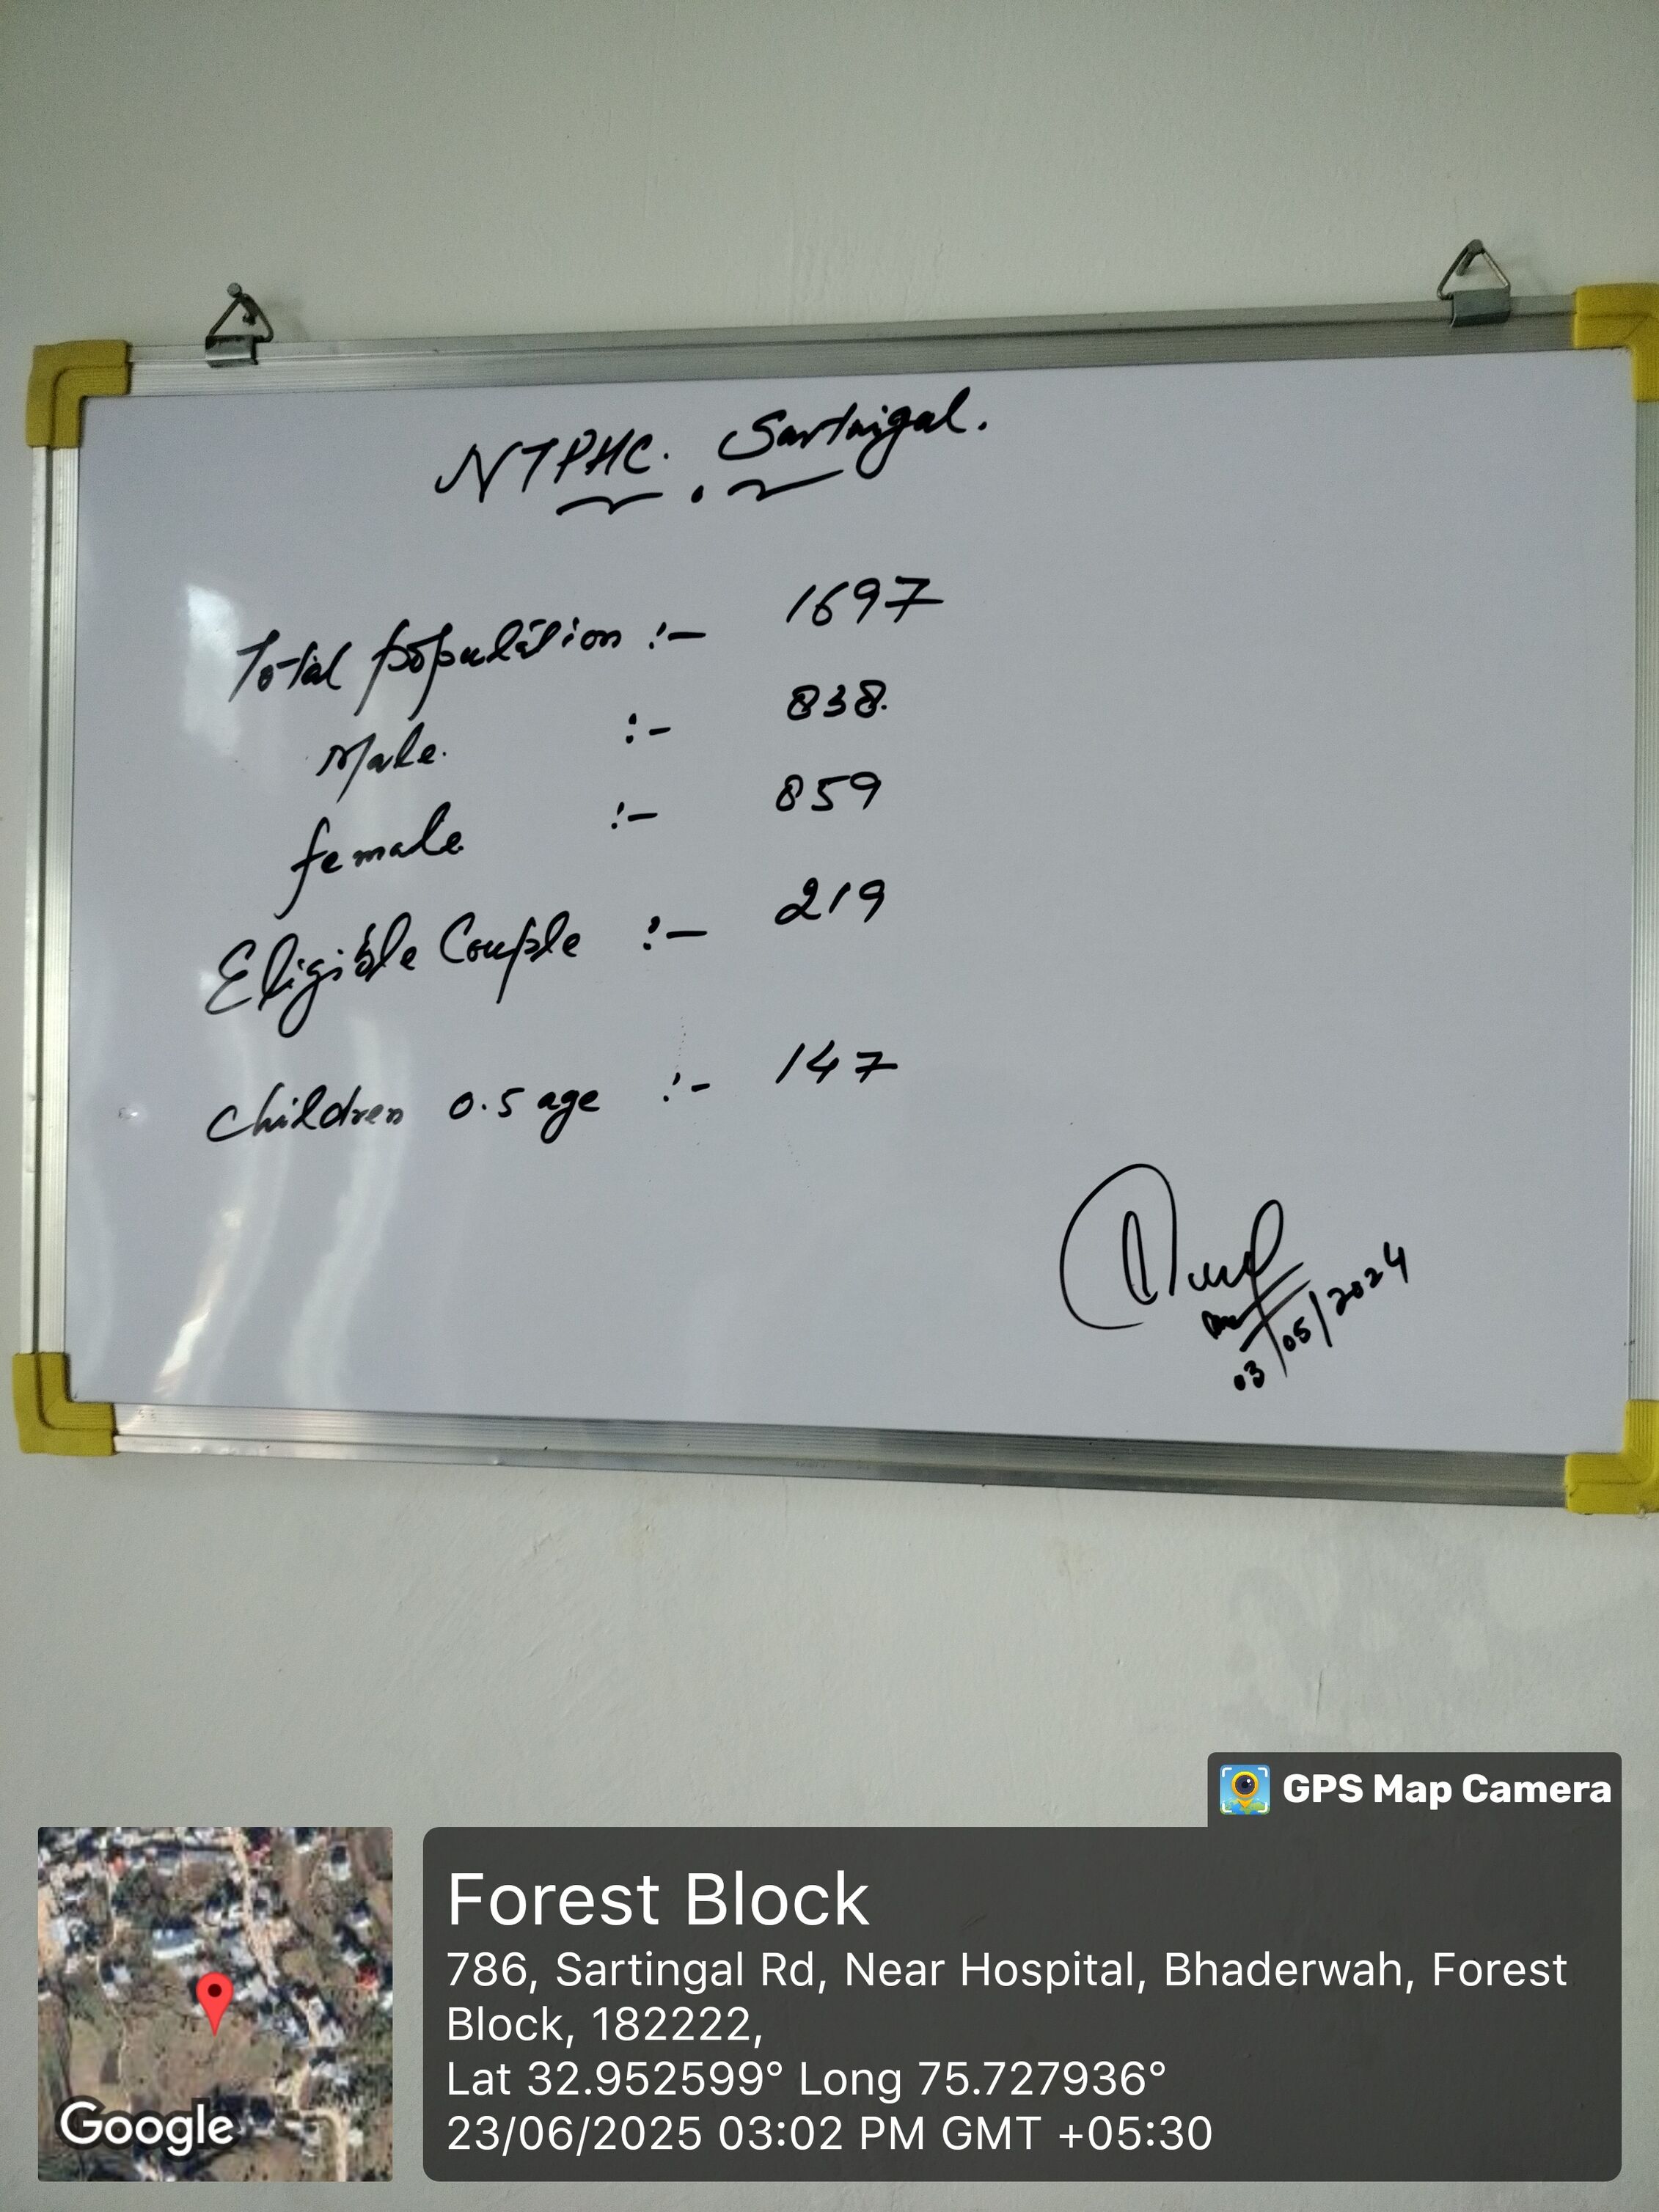 NTPHC. Sartingal.
Total population :- 1697
Male. :- 838.
female :- 859
Eligible Couple :- 219
children 0.5 age :- 147
03/05/2024
GPS Map Camera
Forest Block
786, Sartingal Rd, Near Hospital, Bhaderwah, Forest
Block, 182222,
Lat 32.952599° Long 75.727936°
23/06/2025 03:02 PM GMT +05:30
Google